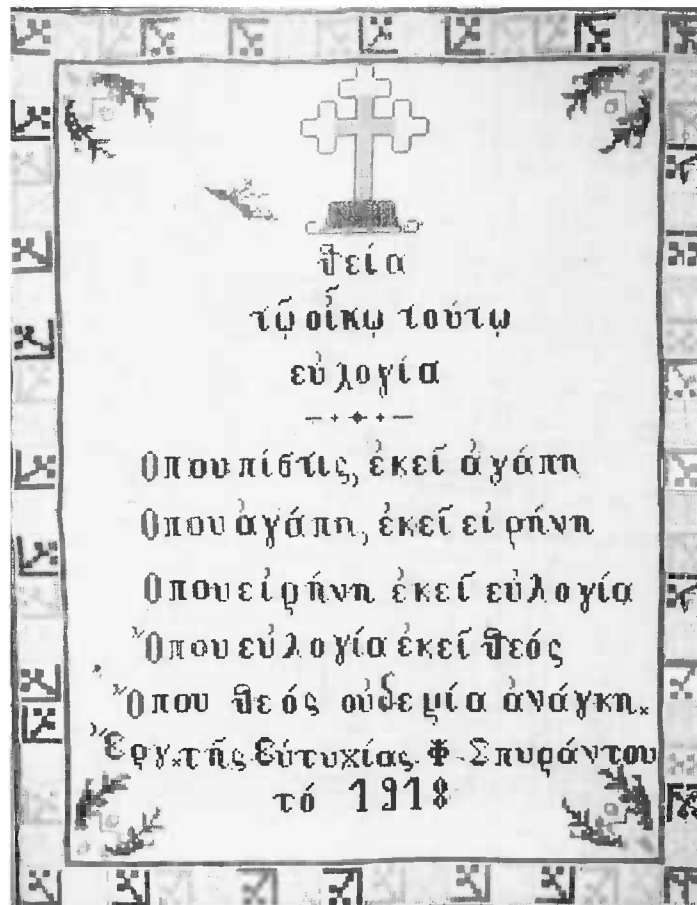 θεία
τῷ οἴκῳ τούτῳ
εὐλογία
Ὁπου πίστις, ἐκεῖ ἀγάπη
Ὁπου ἀγάπη, ἐκεῖ εἰρήνη
Ὁπου εἰρήνη ἐκεῖ εὐλογία
Ὅπου εὐλογία ἐκεῖ θεός
Ὅπου θεός οὐδεμία ἀνάγκη.
Ἔργ. τῆς Εὐτυχίας Φ. Σπυράντου
τό 1918